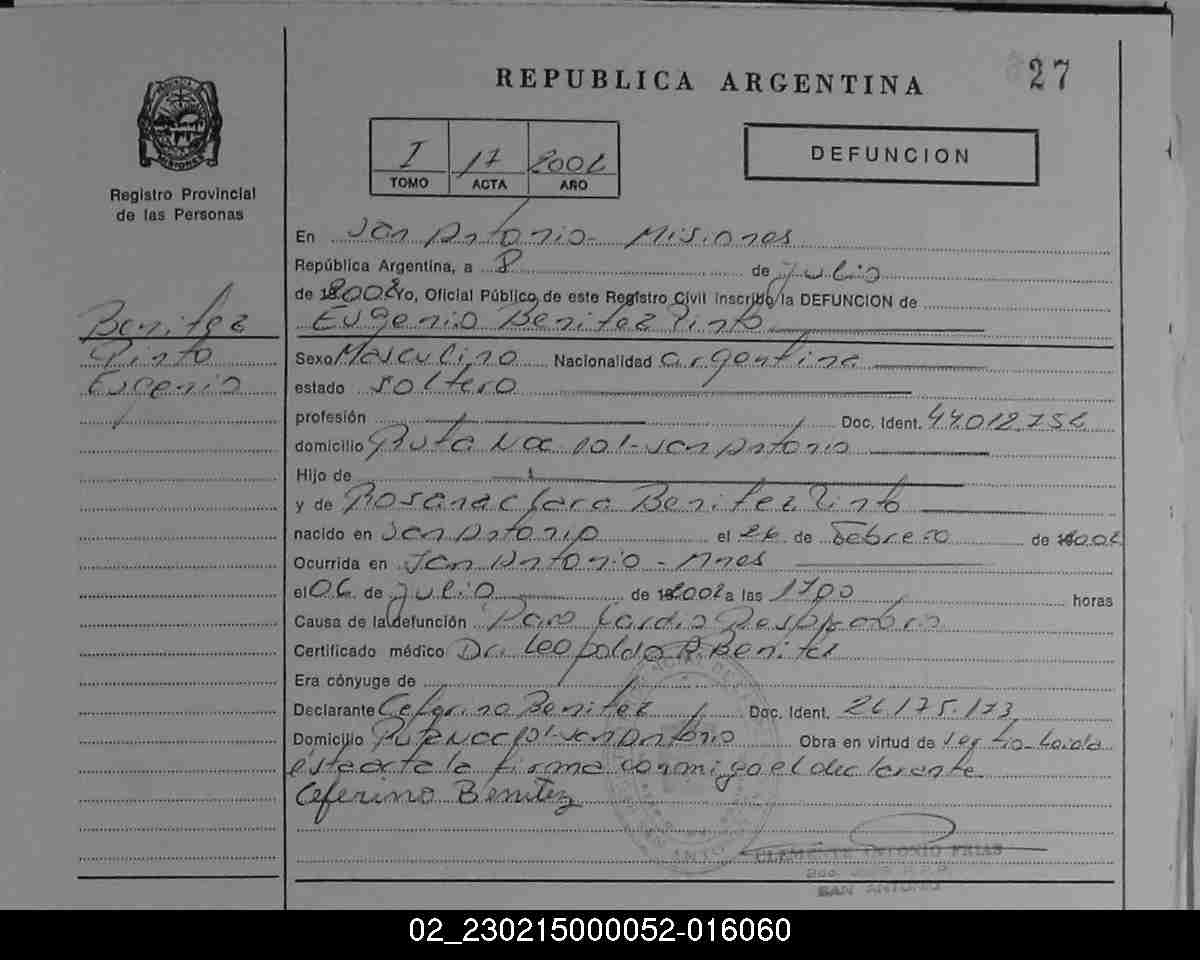 27
REPUBLICA ARGENTINA
DEFUNCION
I 17 2002
TOMO ACTA AÑO
Registro Provincial
de las Personas
Benitez
Pinto
Eugenio
En San Antonio - Misiones
República Argentina, a 8 de Julio
de 2002 Yo, Oficial Público de este Registro Civil inscribo la DEFUNCION de
Eugenio Benitez Pinto
Sexo Masculino Nacionalidad argentina
estado soltero
profesión Doc. Ident. 44.012.752
domicilio Ruta Nac 101 - San Antonio
Hijo de
y de Rosana Clara Benitez Pinto
nacido en San Antonio el 26 de Febrero de 2002
Ocurrida en San Antonio - Mnes
el 06 de Julio de 2002 a las 1700 horas
Causa de la defunción Paro Cardio Respiratorio
Certificado médico Dr. Leopoldo R Benitez
Era cónyuge de
Declarante Ceferino Benitez Doc. Ident. 26.175.173
Domicilio Ruta Nac 101 San Antonio Obra en virtud de ser tio Leida
esta acta la firma conmigo el declarante
Ceferino Benitez
CLEMENTE ANTONIO FRIAS
SAN ANTONIO
02_230215000052-016060